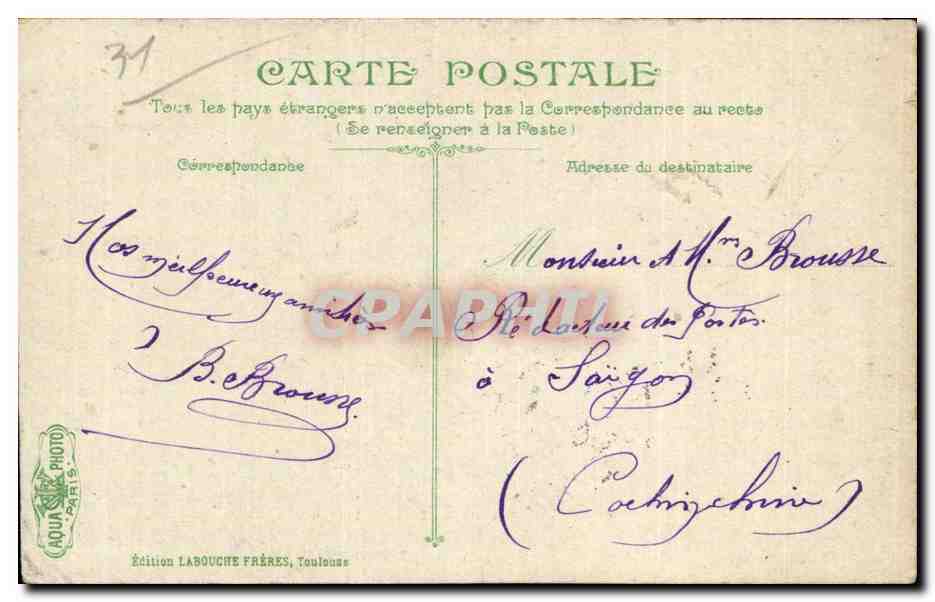 31
CARTE POSTALE
Tous les pays étrangers n'acceptent pas la Correspondance au recto
(Se renseigner à la Poste)
Correspondance
Nos meilleures amitiés
B. Brousse
Adresse du destinataire
Monsieur et Mme Brousse
Rédacteur des Postes
à Saïgon
(Cochinchine)
CPAPHIL
AQUA PHOTO
PARIS
Édition LABOUCHE FRÈRES, Toulouse